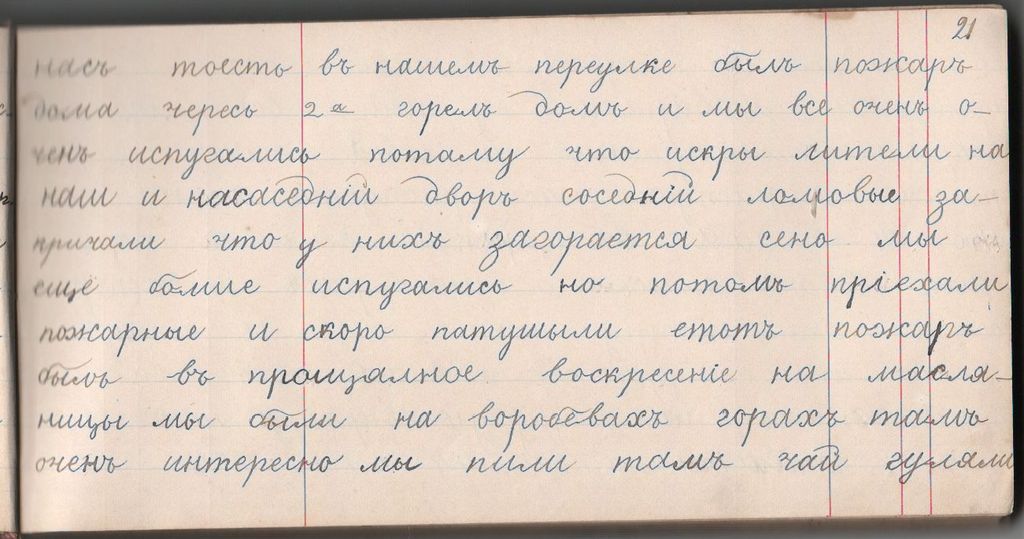 21
насъ тоесть въ нашемъ переулке былъ пожаръ
дома чересь 2а горелъ домъ и мы все очень о-
ченъ испугались потаму что искры лители на
наш и насаседній дворъ соседній ломовые за-
кричали что у нихъ загорается сено мы
еще болше испугались но потомъ пріехали
пожарные и скоро патушыли етотъ пожаръ
былъ въ прощалное воскресеніе на масля-
ницы мы были на воробевахъ горахъ тамъ
оченъ интересно мы пили тамъ чай гуляли